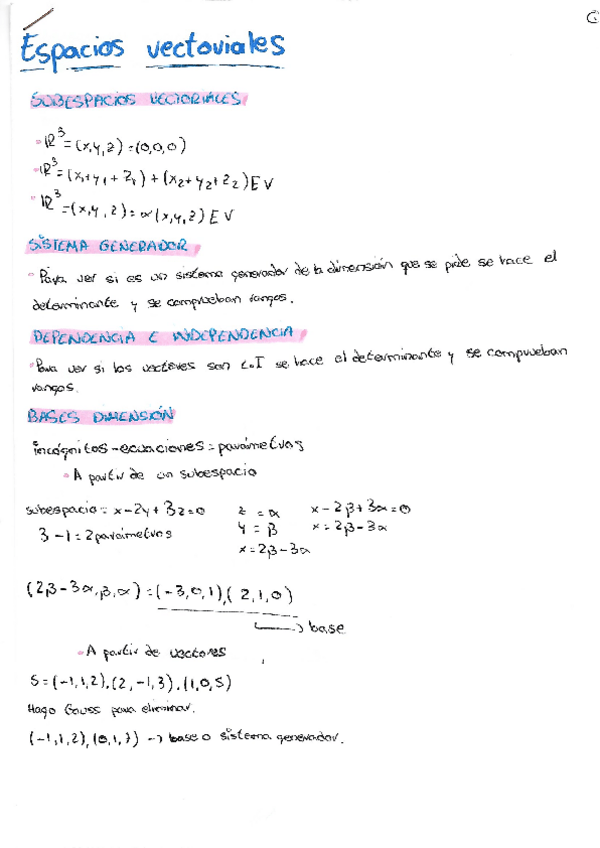 Espacios vectoriales
SUBESPACIOS VECTORIALES
• ℝ³ = (x,y,z) = (0,0,0)
• ℝ³ = (x₁+y₁+z₁) + (x₂+y₂+z₂) E V
• ℝ³ = (x,y,z) = α(x,y,z) E V
SISTEMA GENERADOR
• Para ver si es un sistema generador de la dimensión que se pide se hace el
determinante y se comprueban rangos.
DEPENDENCIA E INDEPENDENCIA
• Para ver si los vectores son L.I se hace el determinante y se comprueban
rangos.
BASES DIMENSIÓN
incógnitas - ecuaciones = parámetros
• A partir de un subespacio
subespacio = x-2y+3z=0 z = α x-2β+3α=0
3-1=2 parámetros y = β x=2β-3α
x=2β-3α
(2β-3α,β,α) = (-3,0,1),(2,1,0)
→ base
• A partir de vectores
S=(-1,1,2),(2,-1,3),(1,0,5)
Hago Gauss para eliminar.
(-1,1,2),(0,1,7) → base o sistema generador.